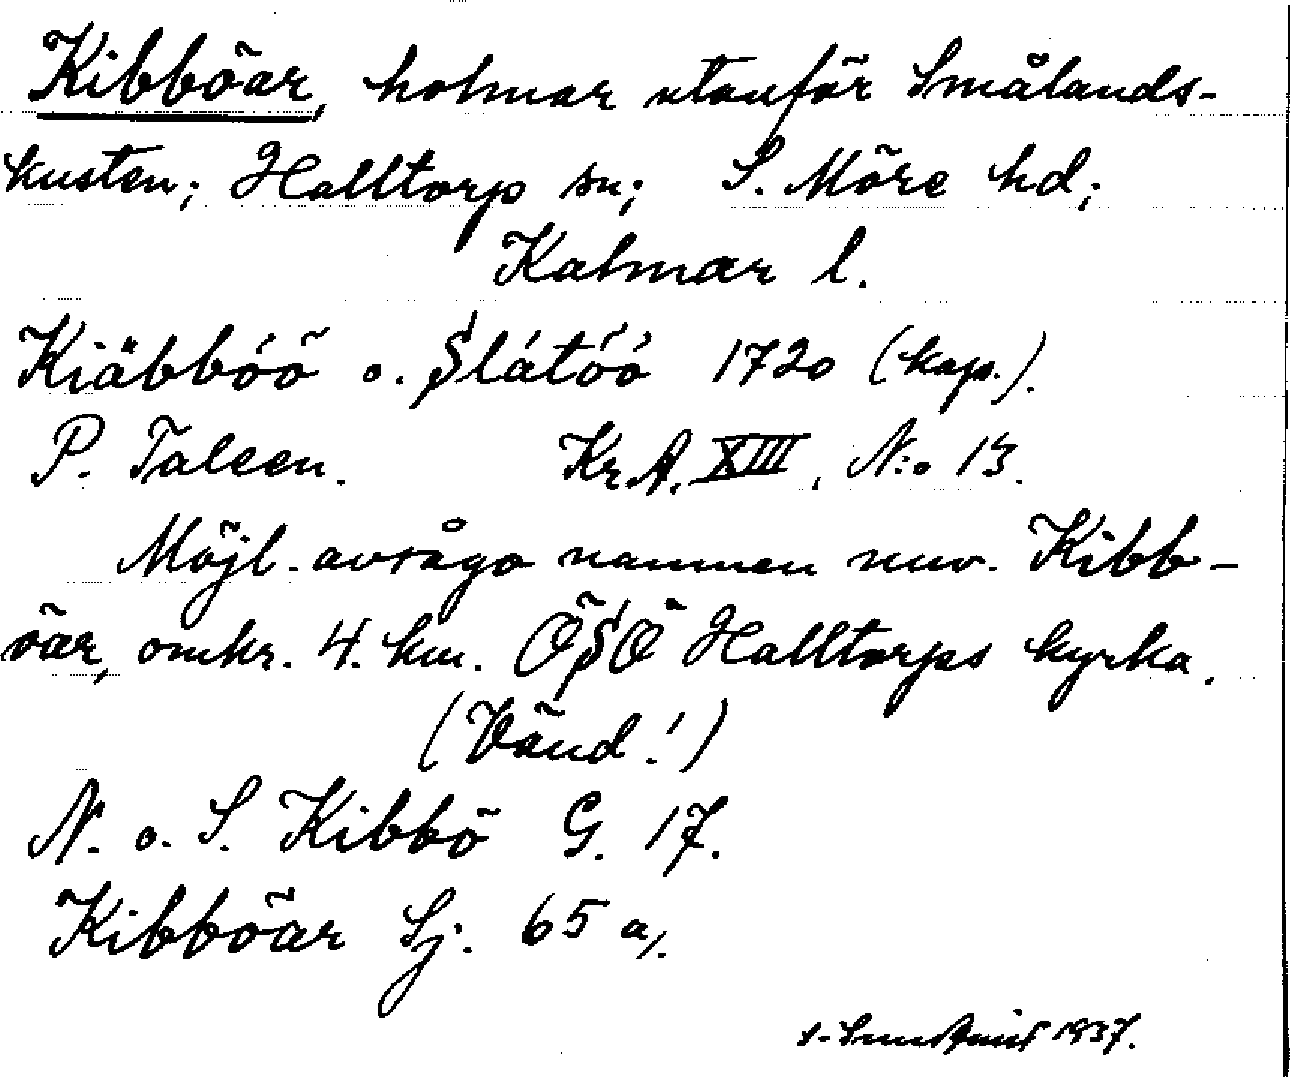 Kibböar, holmar utanför Smålands-
kusten; Halltorp sn; S. Möre hd;
Kalmar l.
Kiäbbóö o. Slátóó 1720 (kop.).
P. Taleen. Kr.A. XIII, N:o 13.
Möjl. avsågo namnen nuv. Kibb-
öar, omkr. 4. km. ÖSÖ Halltorps kyrka.
(Vänd!)
N. o. S. Kibbö G. 17.
Kibböar Sj. 65 a/.
1937.